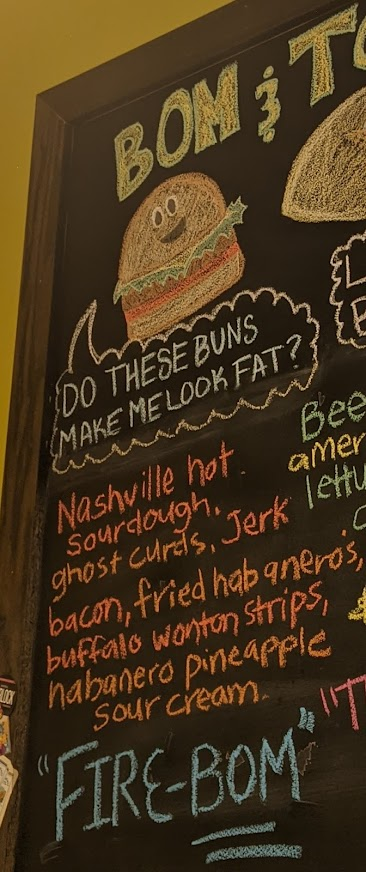 BOM & TO
DO THESE BUNS
MAKE ME LOOK FAT?
Nashville hot
sourdough,
ghost curds, Jerk
bacon, fried habanero's,
buffalo wonton strips,
habanero pineapple
sour cream.
"FIRE-BOM"
L
B
Bee
amer
lettu
"T